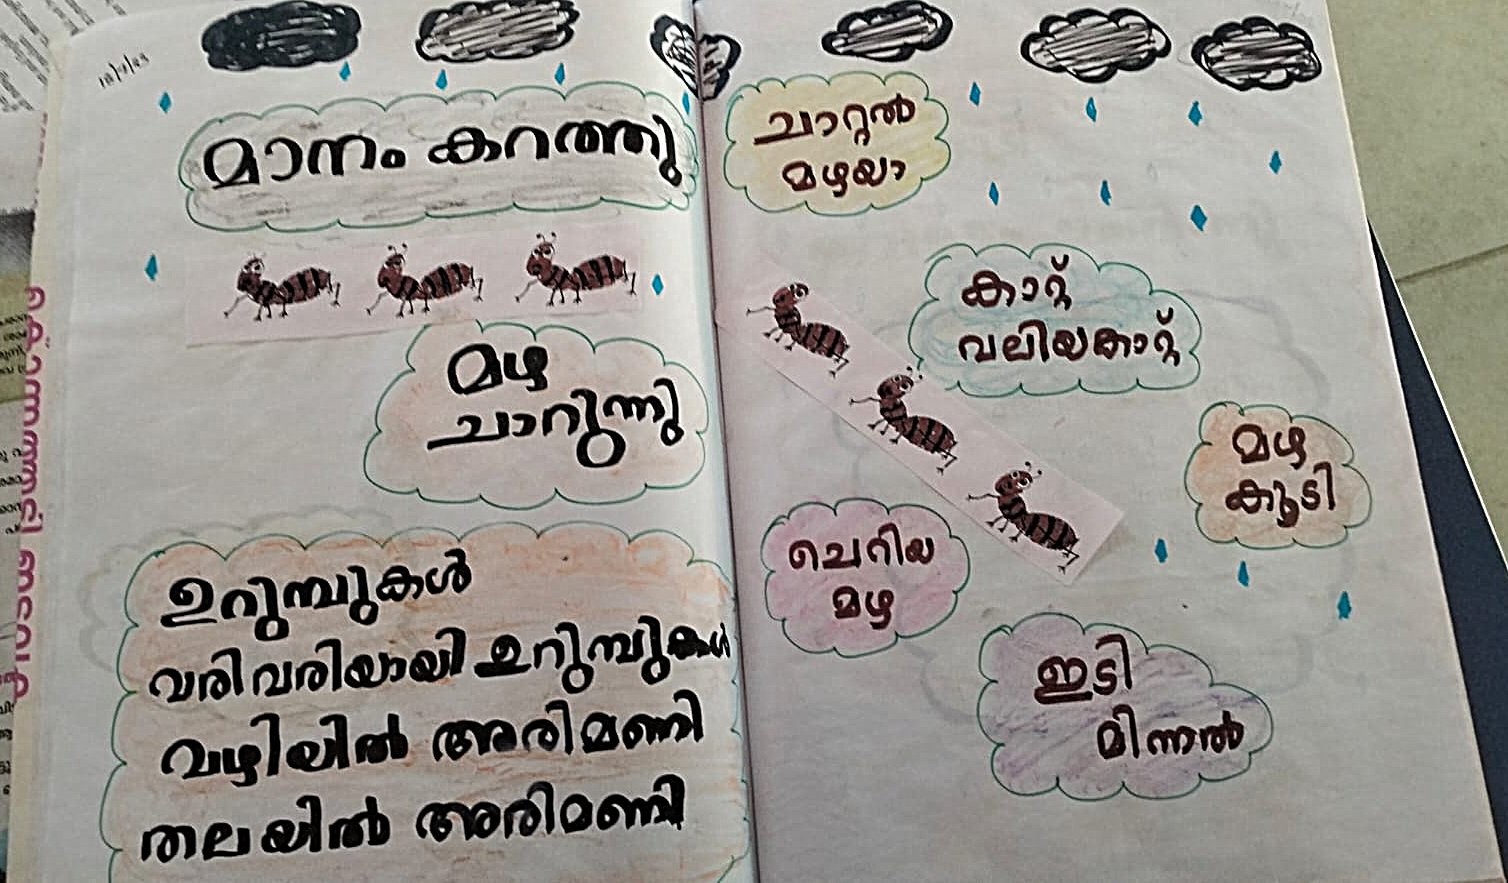 18/7/23
മാനം കറത്തു
മഴ
ചാറുന്നു
ഉറുമ്പുകൾ
വരിവരിയായി ഉറുമ്പുകൾ
വഴിയിൽ അരിമണി
തലയിൽ അരിമണി
ചാറ്റൽ
മഴയാ
കാറ്റ്
വലിയകാറ്റ്
മഴ
കൂടി
ചെറിയ
മഴ
ഇടി
മിന്നൽ